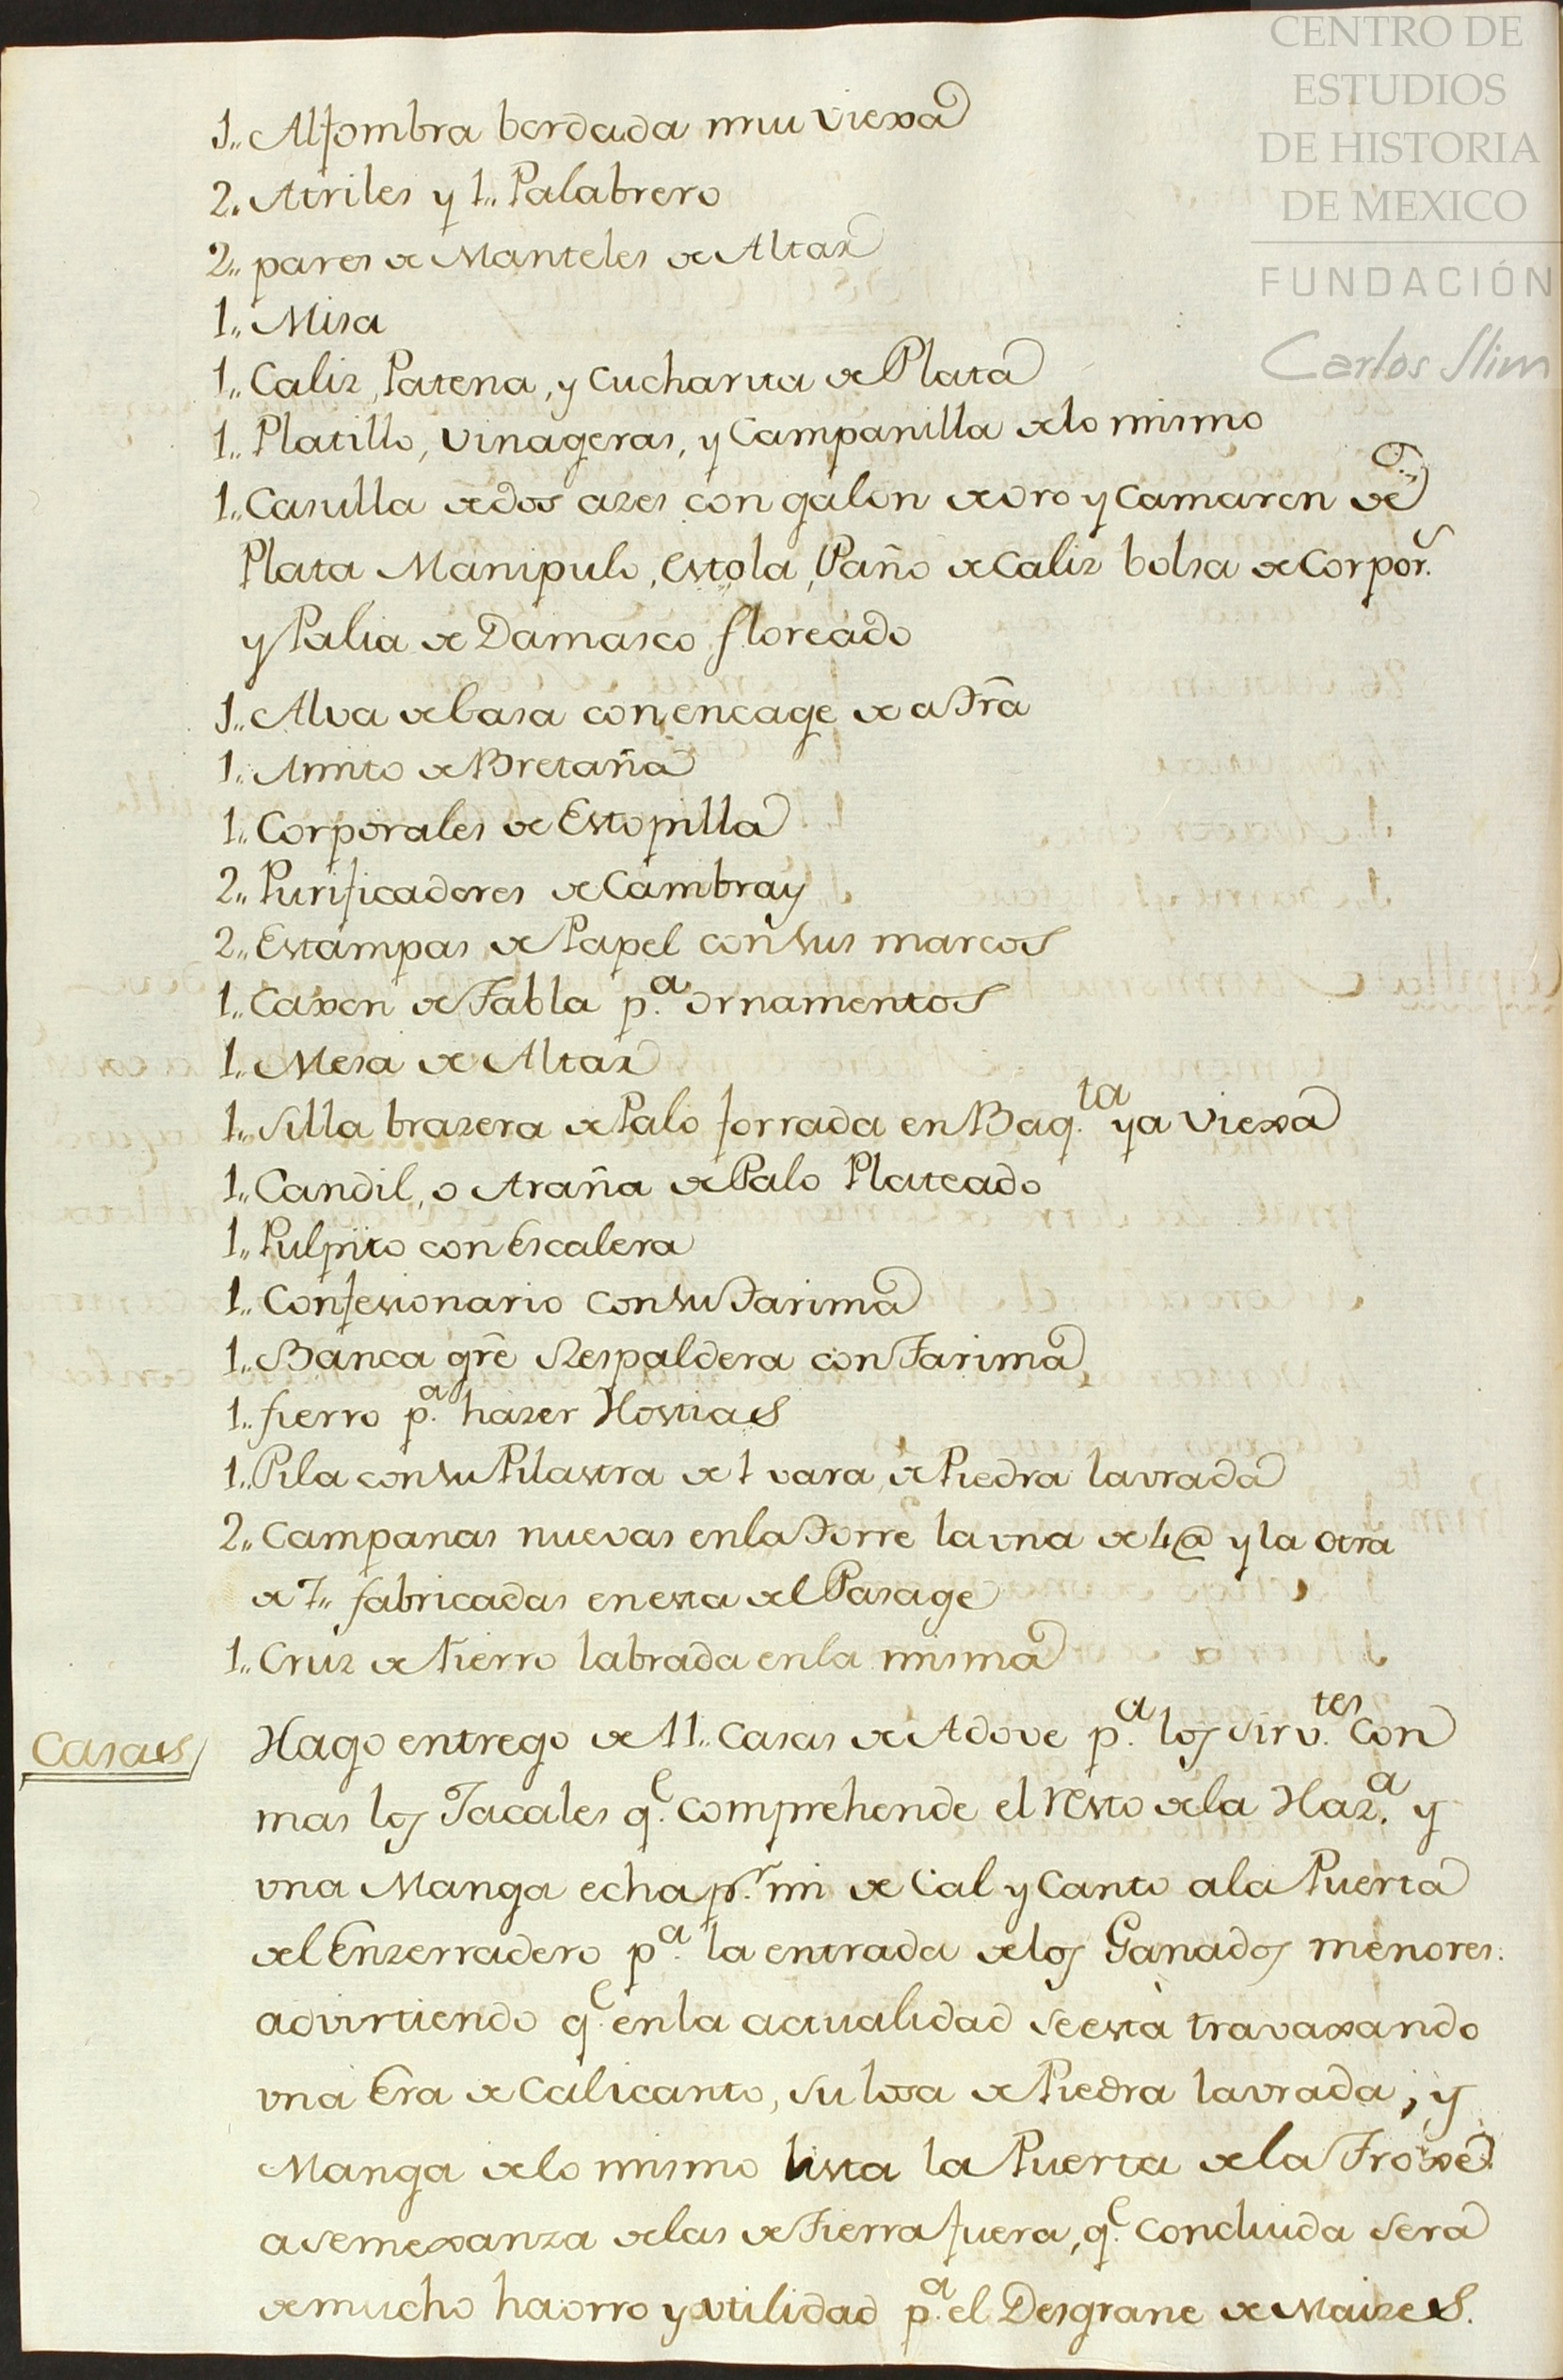 CENTRO DE
ESTUDIOS
DE HISTORIA
DE MEXICO
FUNDACIÓN
Carlos Slim
1,, Alfombra bordada mui viexa
2,, Atriles y 1,, Palabrero
2,, pares de Manteles de Altar
1,, Misa
1,, Caliz, Patena, y Cucharita de Plata
1,, Platillo, vinageras, y Campanilla de lo mismo
1,, Casulla de dos azes con galon de oro y Camaron de
Plata Manipulo, estola, Paño de Caliz bolsa de Corpor.s
y Palia de Damasco floreado
1,, Alva de basa con encage de a Trã
1,, Amito de Bretaña
1,, Corporales de Estopilla
2,, Purificadores de Cambray
2,, Estampas de Papel con sus marcos
1,, Caxon de Tabla p.a ornamentos
1,, Mesa de Altar
1,, Silla brazera de Palo forrada en Baq.ta ya viexa
1,, Candil, o Araña de Palo Plateado
1,, Pulpito con Escalera
1,, Confesionario con su Tarima
1,, Banca grẽ Respaldera con Tarima
1,, fierro p.a hazer Hostias
1,, Pila con su Pilastra de 1 vara, de Piedra lavrada
2,, Campanas nuevas en la Torre la una de 4@ y la otra
de 7,, fabricadas en esta del Pasage
1,, Cruz de fierro labrada en la misma
Casas Hago entrego de 11,, Casas de Adove p.a los sirv.tes Con
mas los Jacales q.e comprehende el resto de la Haz.a y
una Manga echa p.r mi de Cal y Canto a la Puerta
del Enzerradero p.a la entrada de los Ganados menores.
advirtiendo q.e en la actualidad se està travaxando
una Era de Calicanto, su losa de Piedra lavrada, y
Manga de lo mismo hasta la Puerta de la Troxe
a semexanza de las de Tierra fuera, q.e concluida sera
de mucho haorro y utilidad p.a el Desgrane de Maizes.